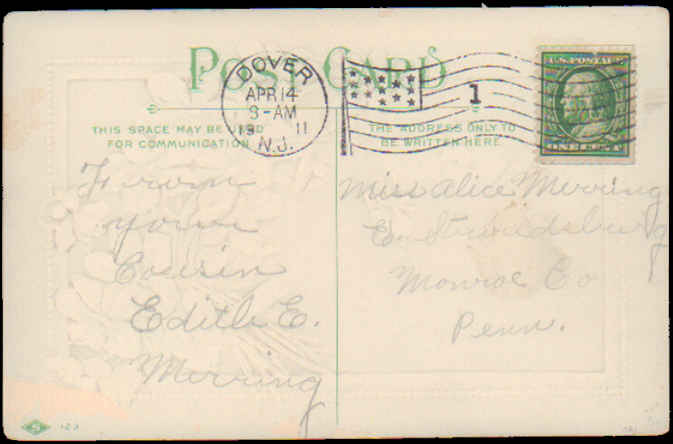 POST CARD
DOVER
APR 14
3-AM
19 11
N.J.
1
U.S. POSTAGE
ONE CENT
THIS SPACE MAY BE USED
FOR COMMUNICATION
THE ADDRESS ONLY TO
BE WRITTEN HERE
From
your
Cousin
Edith E.
Merring
Miss Alice Merring
E. Stroudsburg
Monroe Co
Penn.
S 123